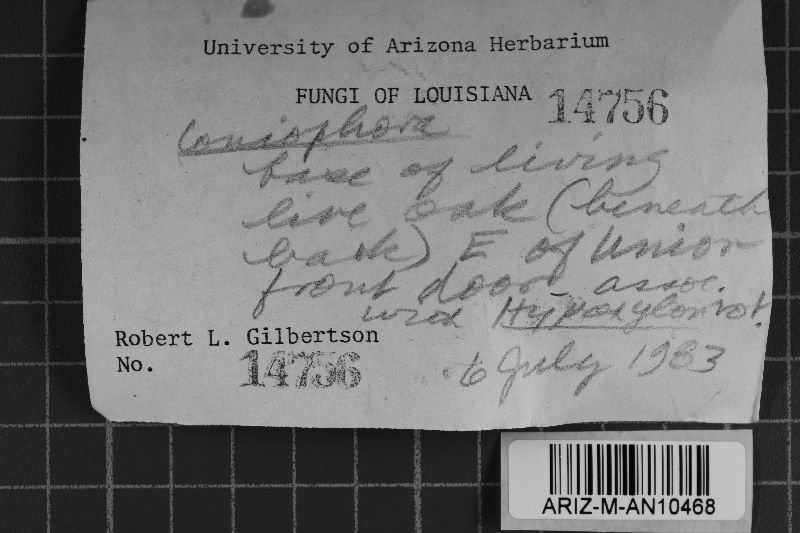 University of Arizona Herbarium
FUNGI OF LOUISIANA 14756
Coniophora
base of living
live oak (beneath
bark) E of Union
front door assoc.
with Hypoxylon rot.
Robert L. Gilbertson
No. 14756 6 July 1983
ARIZ-M-AN10468